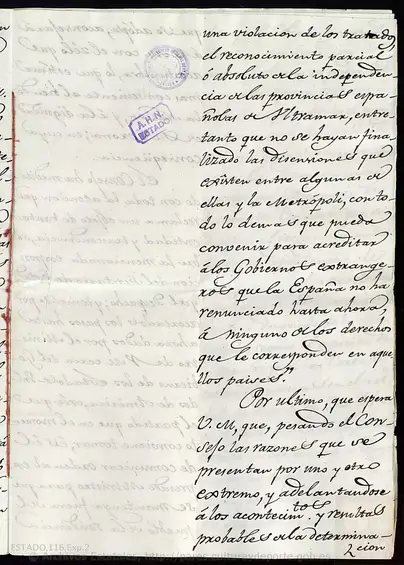 una violacion de los tratados
el reconocimiento parcial
ó absoluto de la independen
cia de las provincias espa
ñolas de Ultramar, entre
tanto que no se hayan fina
lizado las disensiones que
existen entre algunas de
ellas y la Metrópoli, con to
do lo demas que pueda
convenir para acreditar
á los Gobiernos extrange
ros que la España no ha
renunciado hasta ahora,
á ninguno de los derechos
que le corresponden en aque
llos paises."
Por ultimo, que espera
V. M. que, pesando el Con
sejo las razones que se
presentan por uno y otro
extremo, y adelantandose
á los acontecim.tos y resultas
probables de la determina-
cion
A.H.N.
ESTADO
ESTADO,116,Exp.2